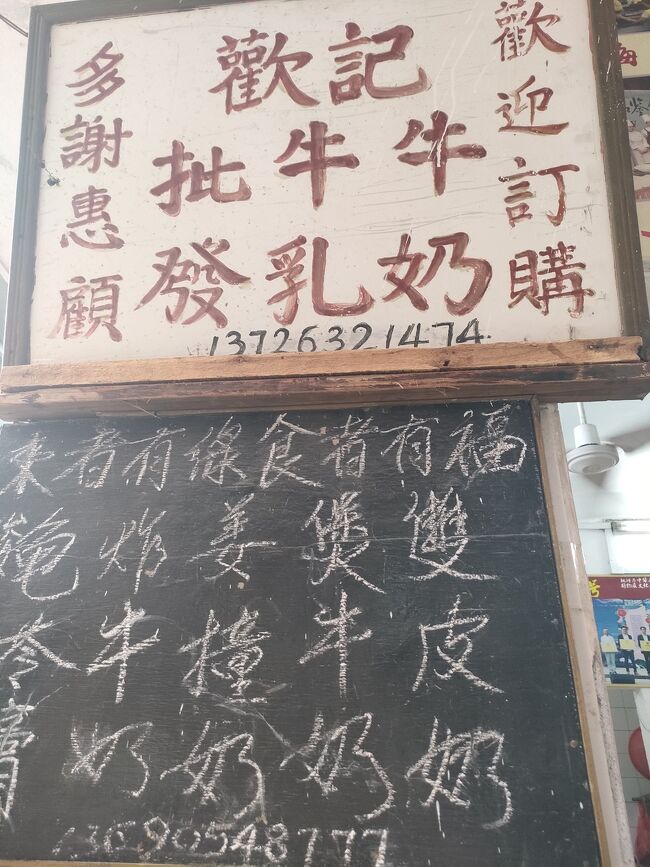 歡迎訂購
歡記
牛奶
牛乳
批發
多謝惠顧
13726321474
來者有緣食者有福
雙皮奶
煲牛奶
姜撞奶
炸牛奶
龜苓膏